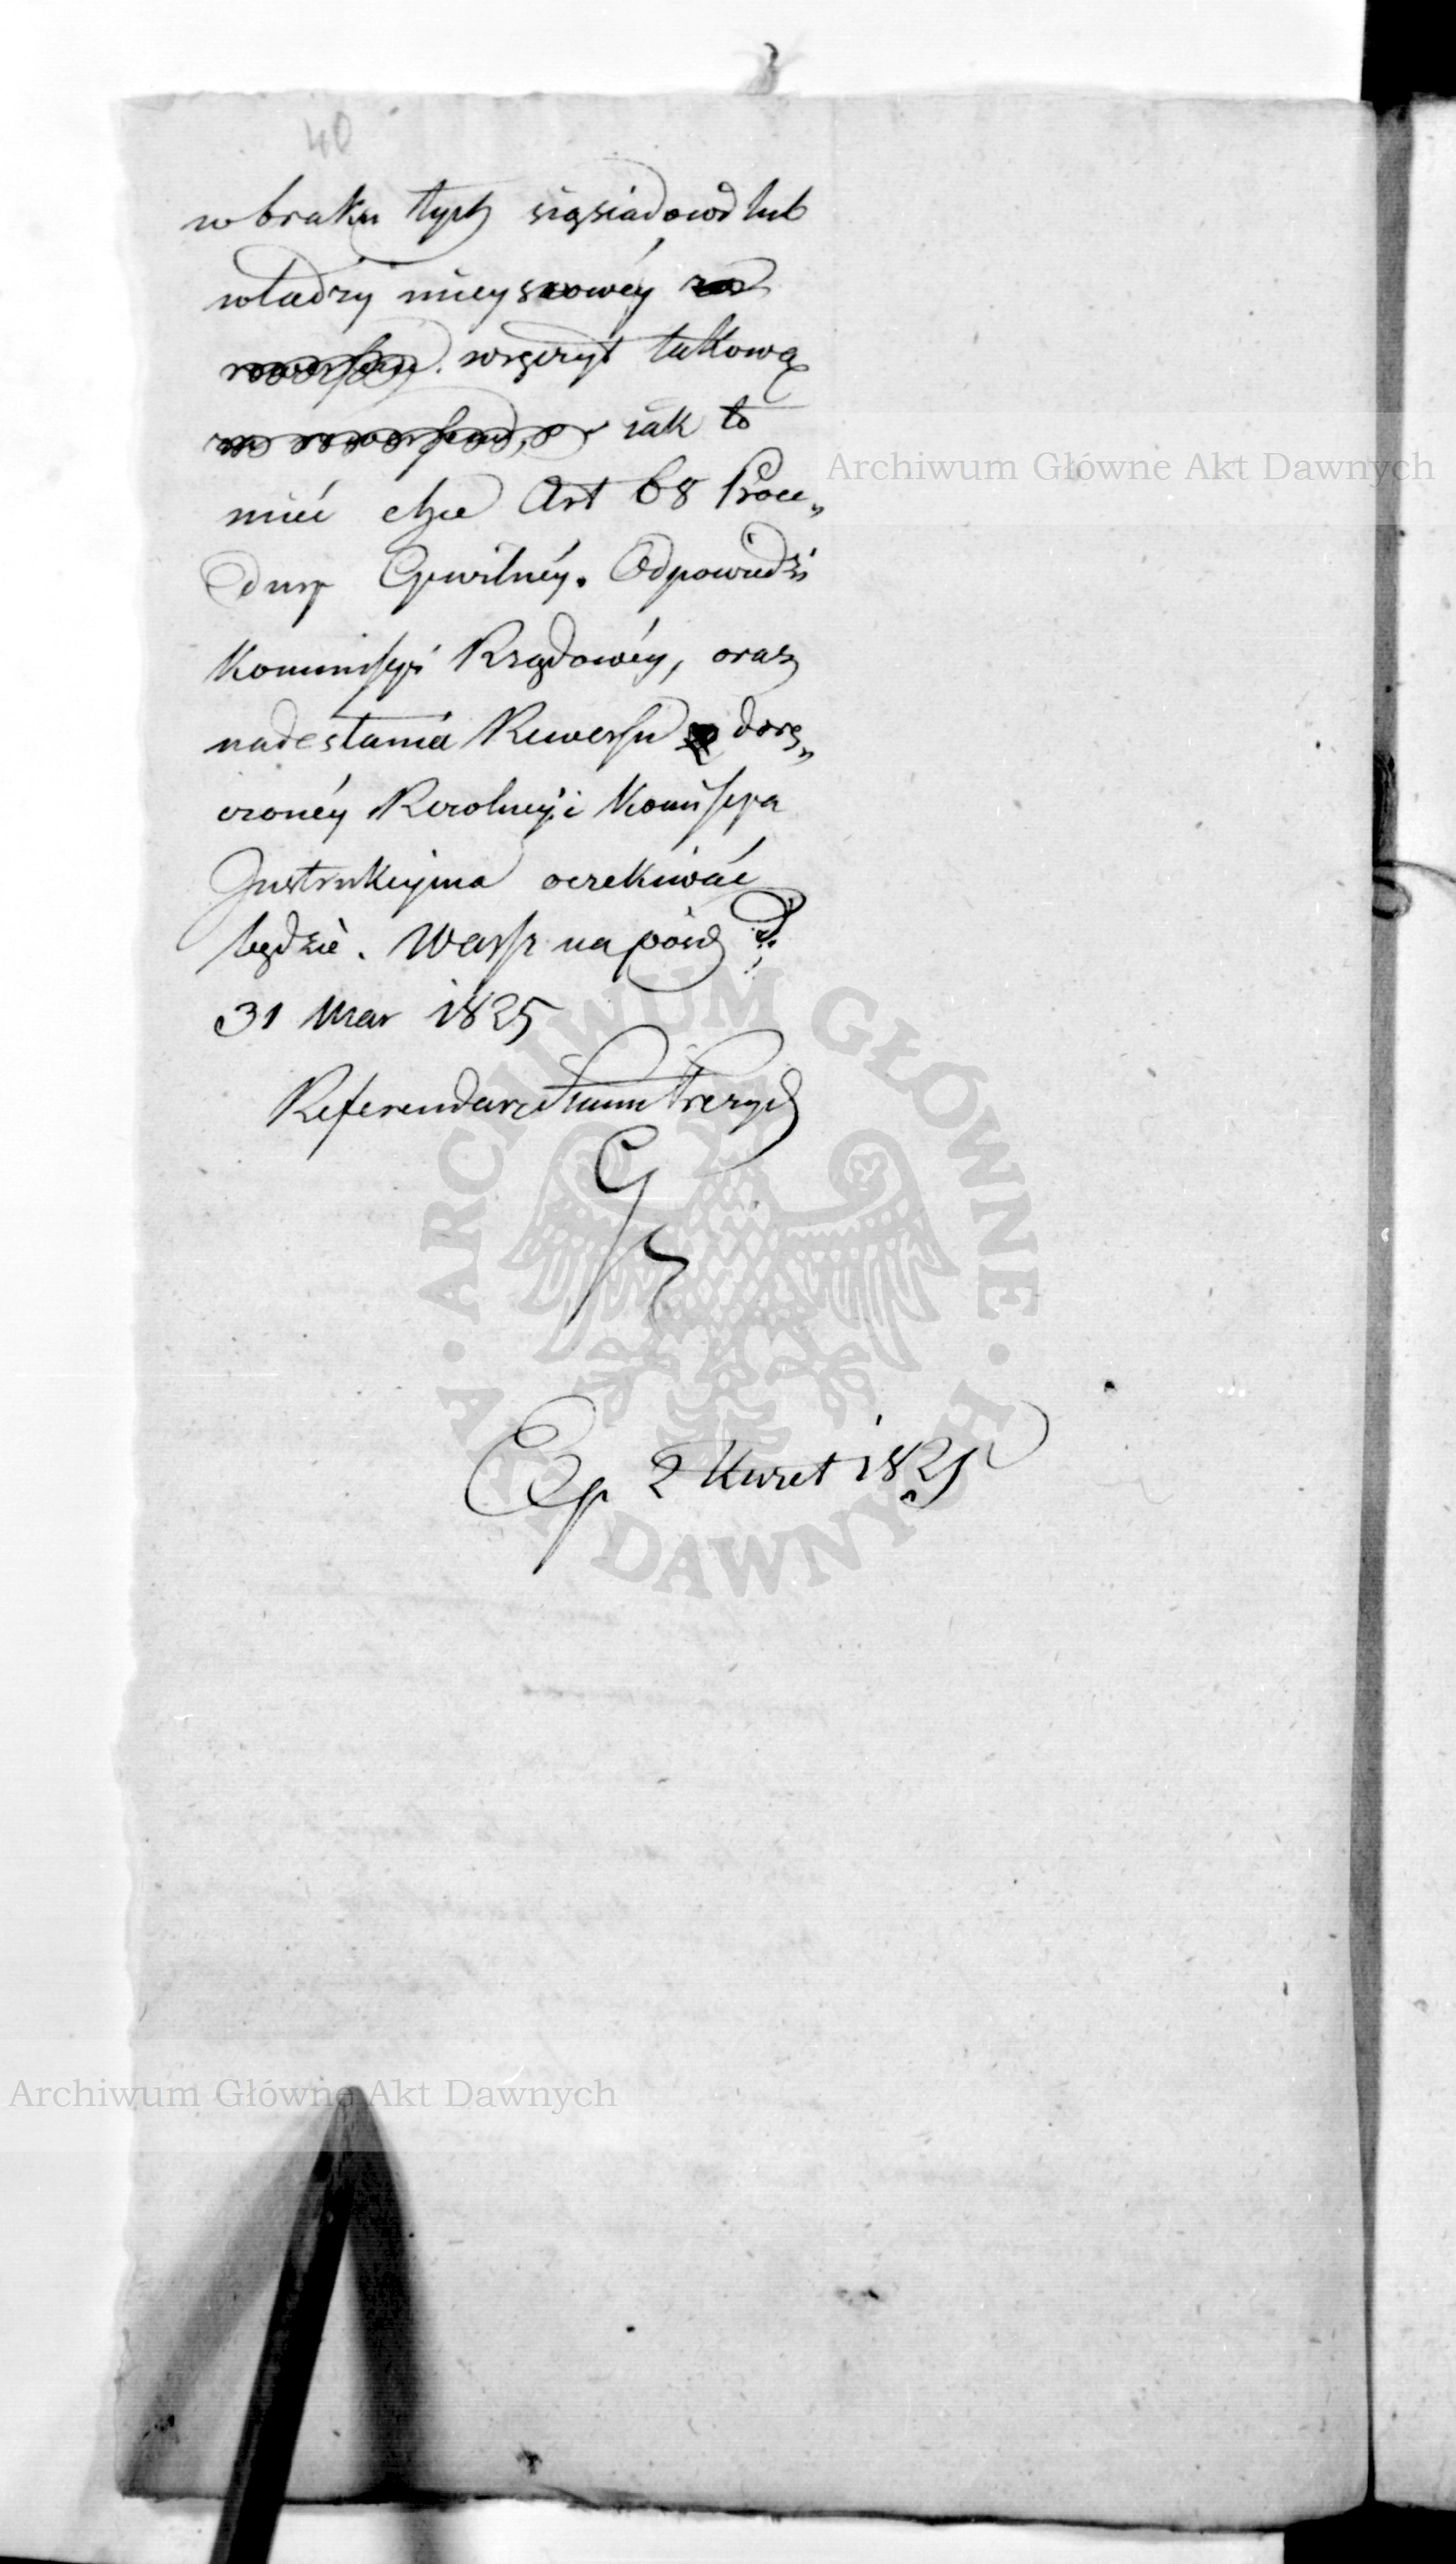 40
w braku tych sąsiadow lub
władzy mieyscowéy
wręczył takową
iak to
mieć chce Art 68 Proce„
dury Cywilnéy. Odpowiedzi
Kommissyi Rządowéy, oraz
nadesłania Rewersu dorę„
czonéy Rezolucyi Komissya
Instrukcyina oczekiwać
będzie. Warsz na posied d.
31 Mar 1825
Referendarz Stanu Prezyd
Exp 2 Kwiet 1825
Archiwum Główne Akt Dawnych
ARCHIWUM GŁÓWNE AKT DAWNYCH
Archiwum Główne Akt Dawnych